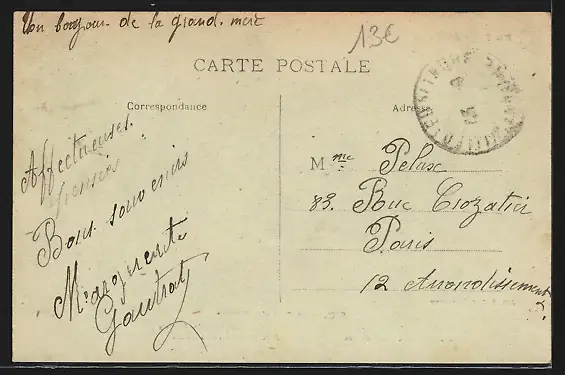 Un bonjour de la grand. mère
13€
CARTE POSTALE
Correspondance
Adresse
Affectueuses.
Pensées
Bons souvenirs
Marguerite
Gautrat
Mme Pelux
83. Rue Crozatier
Paris
12 Arrondissement